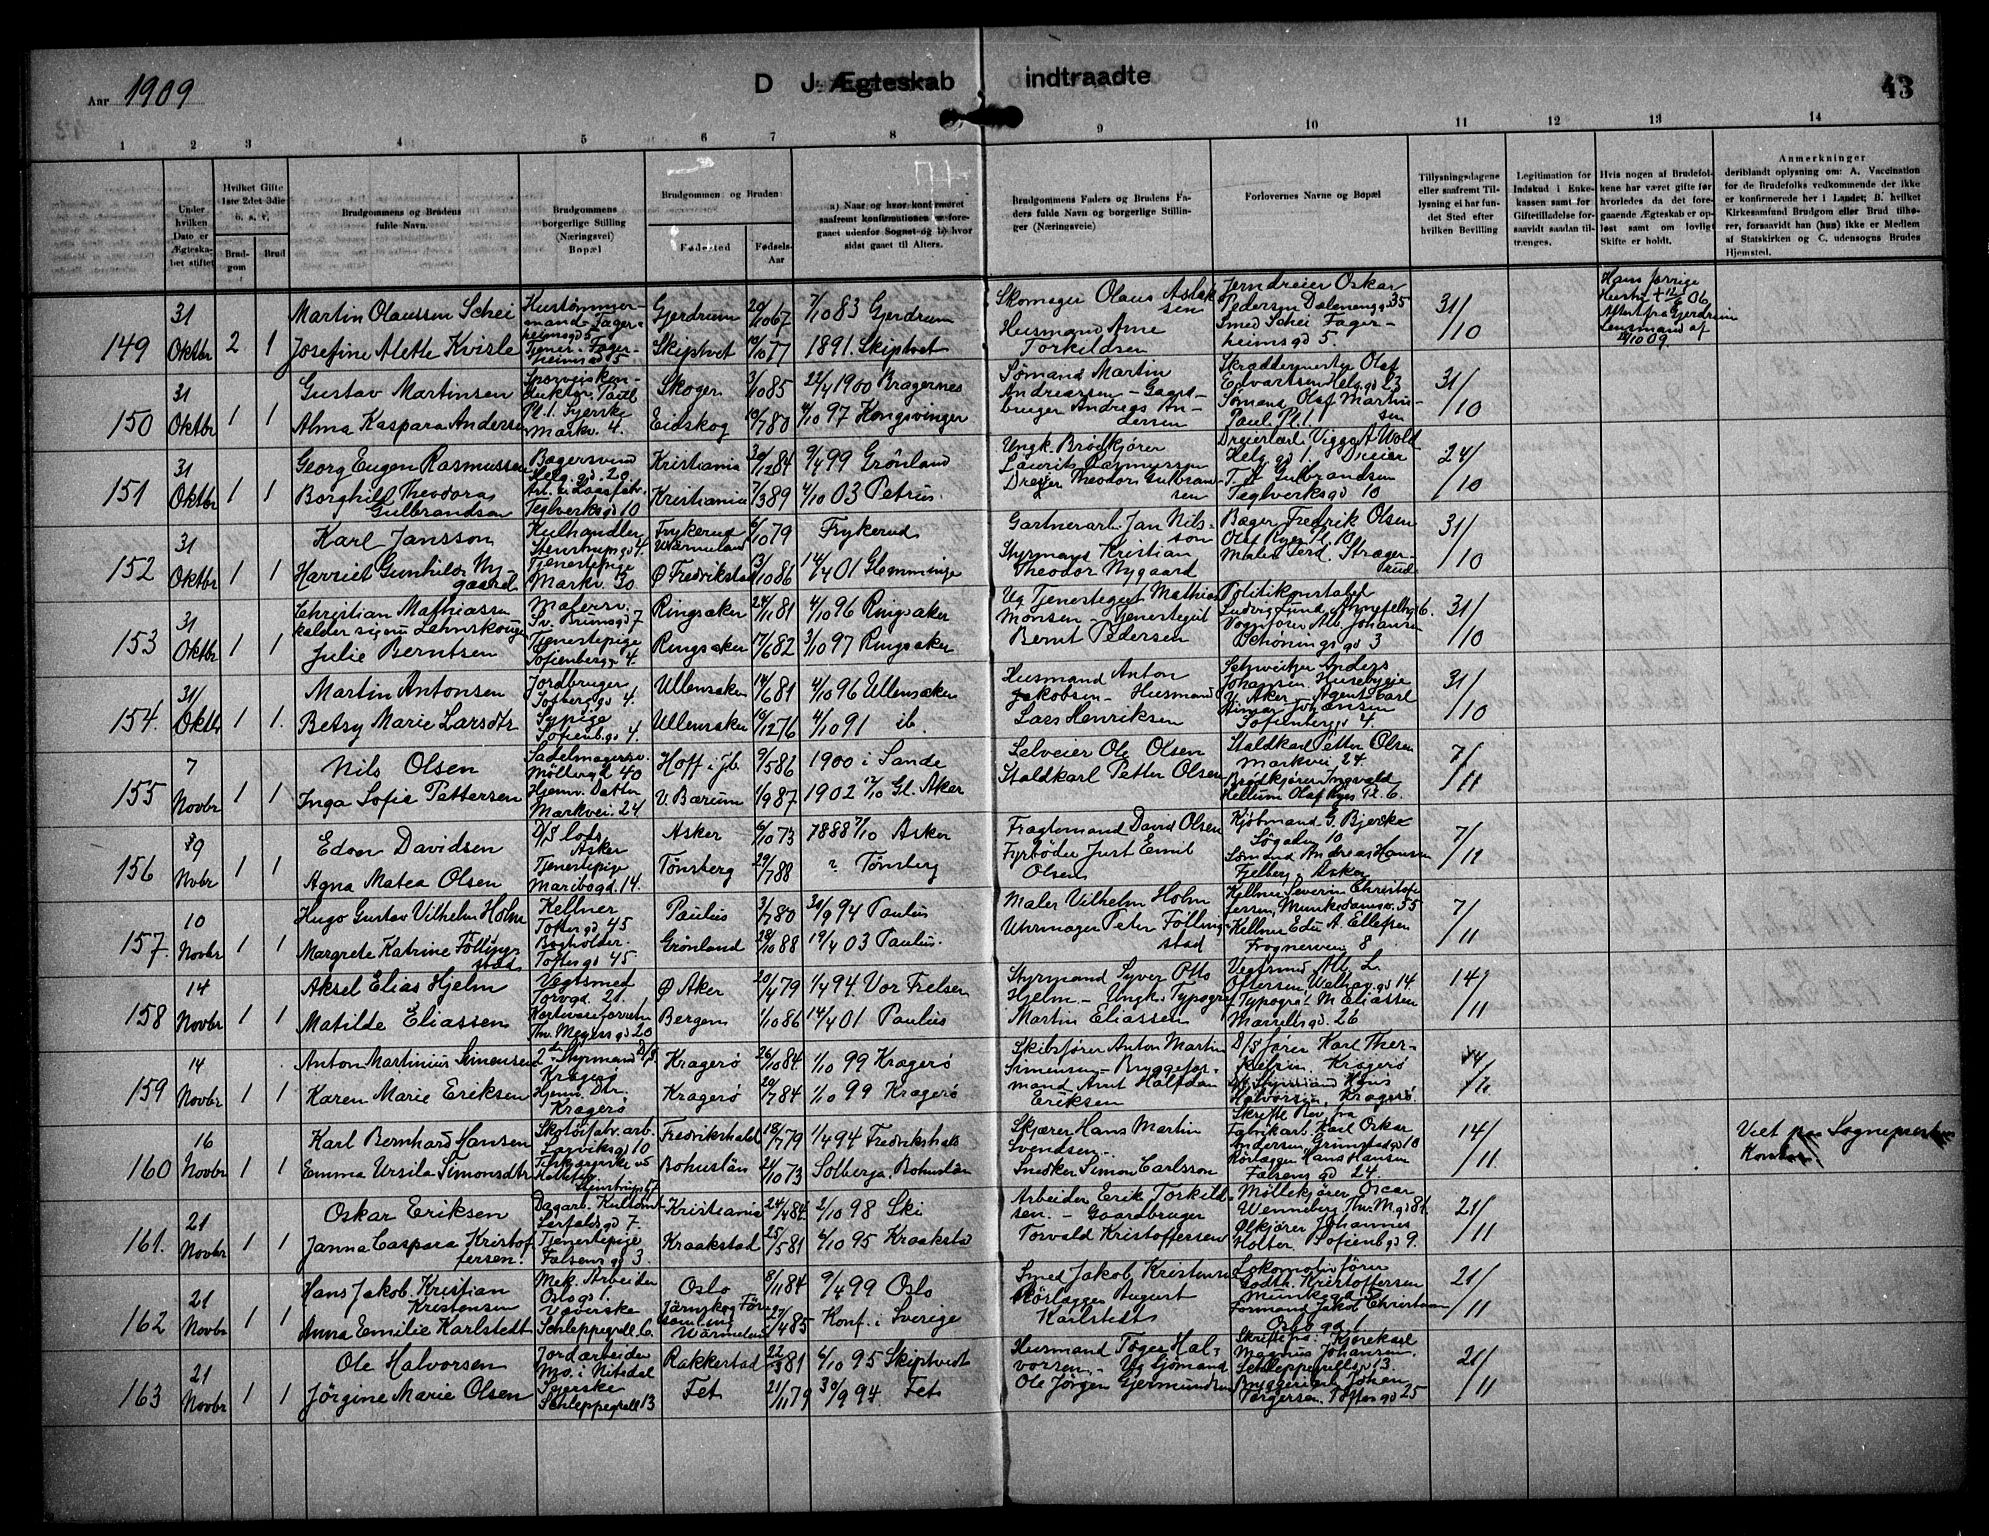 Aar 1909
D J. Ægteskab indtraadte
43
1 2 3 4 5 6 7 8 9 10 11 12 13 14
Under hvilken Dato er Ægteskabet stiftet
Hvilket Gifte 1ste 2det 3die o. s. v.
Brudgom
Brud
Brudgommens og Brudens fulde Navn.
Brudgommens borgerlige Stilling (Næringsvei) Bopæl
Brudgommen og Bruden:
Fødested
Fødsels-Aar
a) Naar og hvor konfirmeret saafremt konfirmationen er foregaaet udenfor Sognet og b) hvor sidst gaaet til Alters.
Brudgommens Faders og Brudens Faders fulde Navn og borgerlige Stillinger (Næringsveie)
Forlovernes Navne og Bopæl
Tillysningsdagene eller saafremt Tillysning ei har fundet Sted efter hvilken Bevilling
Legitimation for Indskud i Enkekassen samt for Giftetilladelse forsaavidt saadan tiltrænges.
Hvis nogen af Brudefolkene har været gifte før hvorledes da det foregaaende Ægteskab er opløst samt om lovligt Skifte er holdt.
Anmerkninger deriblandt oplysning om: A. Vaccination for de Brudefolks vedkommende der ikke er konfirmerede her i Landet; B. hvilket Kirkesamfund Brudgom eller Brud tilhører, forsaavidt han (hun) ikke er Medlem af Statskirken og C. udensogns Brudes Hjemsted.
149 31 Oktbr 2 1
Martin Olaussen Schei Gjerdrum 20/10 67 7/10 83 Gjerdrum Skomager Olaus Aslaksen Jerndreier Oskar Pedersen Dælenengd 35 31/10
Josefine Alette Kvisle Tjener Fagerheimsgd 5 Skiptvet 10/10 77 1891. Skiptvet Husmand Arne Torkildsen Smed Schei Fagerheimsgd 5.
150 31 Oktbr 1 1
Gustav Martinsen Skoger 3/10 85 22/4 1900 Bragernes Sømand Martin Andreassen Olaf Edvartsen Helg. gd 23 31/10
Alma Kaspara Andersen Markv. 4. Eidskog 10/7 80 4/10 97 Kongsvinger Gaardbruger Andreas Andersen Sømand Olaf Martinsen Paul. Pl. 1
151 31 Oktbr 1 1
Georg Eugen Rasmussen Bagersvend Helg. gd. 20 Kristiania 30/12 84 9/4 99 Grønland Ungk. Brødkjører Laurits Rasmussen Viggo A Wold Helg gd 1. 24/10
Borghild Theodora Gulbrandsen Teglverksgd 10 Kristiania 7/3 89 4/10 03 Petrus. Dreier Theodor Gulbrandsen Dreier T. A Gulbrandsen Teglverksgd 10
152 31 Oktbr 1 1
Karl Jansson Kulhandler Stenstrupsgd 4. Frykerud Wärmeland 6/10 79 Frykerud Gartnerarb. Jan Nilsson Bager Fredrik Olsen Olaf Ryes Pl. 10 31/10
Harriet Gunhilda Nygaard Tjenestepige Markv. 30. Ø Fredrikstad 13/10 86 14/4 01 Glemminge Styrmand Kristian Theodor Nygaard Maler Ferd. Stragerrud
153 31 Oktbr 1 1
Christian Mathiassen kalder sig nu Lehnskouge Sv. Brunsgd 7 Ringsaker 24/1 81 4/10 96 Ringsaker Ug Tjenestegut Mathias Monsen Politikonstabel Ludvig Lund 31/10
Julie Berntsen Tjenestepige Sofienbergd 4. Ringsaker 17/6 82 3/10 97 Ringsaker Tjenestegut Bernt Pedersen Vognfører Alb. Johansen Schøningsgd 3
154. 31/ Oktbr 1 1.
Martin Antonsen Jordbruger Sofberggd 4. Ullensaker 14/6 81 4/10 96 Ullensaker Husmand Anton Jakobsen Anders Johansen Husebyeie V. Aker 31/10
Betsy Marie Larsdtr Sypige Sofienbgd 4. Ullensaker 10/12 76 4/10 91 ib. Husmand Lars Henriksen Agent Carl Johansen Sofienberggd 4.
155 7 Novbr 1 1
Nils Olsen Sadelmagersv. Möllergd 40 Hoff i Jb. 9/5 86 1900 i Sande Selveier Ole Olsen Staldkarl Petter Olsen Markvei 24. 7/11
Inga Sofie Pettersen Hjemv. Datter Markvei 24. V. Bærum 1/9 87 1902 12/10 Gl. Aker Staldkarl Petter Olsen Brødkjører Ingvald Kellum Olaf Ryes Pl. 6.
156 9 Nvbr 1 1
Edon Davidsen Asker Asker 6/10 73 1888 7/10 Asker Fragtemand David Olsen Kjöbmand G. Bjercke Søgaden 10 7/11
Agna Matea Olsen Tjenestepige Maribogd. 14. Tønsberg 29/7 88 ? Tønsberg Fyrbøder Just Emil Olsen Sömand Andreas Hansen Fjelberg, Asker
157. 10 Novbr 1 1
Hugo Gustav Vilhelm Holm Kellner Toftesgd 45 Paulus 3/7 80 30/9 94 Paulus Maler Vilhelm Holm Kellner Severin Christofersen, Munkedamsv. 55 7/11
Margrete Katrine Föllingstad Bogholder. Toftesgd 45 Grönland 28/10 88 19/4 03 Paulus. Uhrmager Peter Föllingstad Kellner Edv A. Ellefsen Frognervei 8
158 14 Novbr 1 1
Aksel Elias Hjelm Vegtsmed Torvgd. 21. Ø Aker 20/4 79 1/4 94. Vor Frelser Styrmand Syver Otto Hjelm Alb. L. Oftersen, Welhav. gd 14 14/11
Matilde Eliassen Thv. Meyersgd 20 Bergen 1/10 86 14/4 01 Paulus Ungk. Typograf Martin Eliassen Typograf M Eliassen 26
159 14 Novbr 1 1
Anton Martinius Simensen 2den Styrmand D/S Kragerö Kragerö 26/10 84 1/10 99 Kragerö Skibsfører Anton Martin Simensen D/S fører Karl Kragerö 14/11
Karen Marie Eriksen Hjemv. Dtr. Kragerö Kragerö 20/7 84 1/10 99 Kragerö Bryggeformand Arnt Halfdan Eriksen Styrmand Hans Halvorsen, Kragerö.
160 16 Novbr 1 1
Karl Bernhard Hansen Skotøifabr. arb. Fredrikshald 18/7 79 1/4 94 Fredrikshald Skjærer Hans Martin Svendsen Fabrikarb. Karl Oskar Andersen Grimstadgd 10 14/11
Emma Ursila Simonsdtr Bohuslän 21/10 73 Solberga. Bohuslän Snedker Simon Carlsson Rörlægger Hans Hansen Falsensgd 24.
161. 21 Novbr 1 1
Oskar Eriksen Kristiania 24/4 84. 2/10 98 Ski Arbeider Erik Torkildsen. Möllekjører Oscar Wenneberg Thv. M gd 81. 21/11
Janna Caspara Kristoffersen. Tjenestepige Falsensgd 3. Kraakstad 25/5 81 6/10 95 Kraakstad Gaardbruger Torvald Kristoffersen Ølkjører Johannes Holter. Sofienbgd 9.
162 21 Novbr 1 1
Hans Jakob Kristian Kristensen Mek. Arbeider Oslogd 1. Oslo 8/11 84 9/4 99 Oslo Smed Jakob Kristensen Lokomotivfører Godth. Kristoffersen Munkegd 5 21/11
Anna Emilie Karlstedt Væverske Schleppegrell 6. Wärmeland 27/4 85 Konf. i Sverige Rörlægger August Karlstedt Formand Jakob Christensen Oslogd 1
163 21 Novbr 1 1
Ole Halvorsen Jordarbeider Mo. i Nitedal Rakkestad 22/3 81 6/10 95 Skiptvedt Husmand Töger Halvorsen Kjørekarl Magnus Johansen. Schleppegrellsgd 13. 21/11
Jörgine Marie Olsen Syerske Schleppegrell 13 Fet 21/11 79 30/9 94. Fet Ug Sjömand Ole Jörgen Gjermundsen Bryggeriarb Johan Torgersen. Toftesgd 25